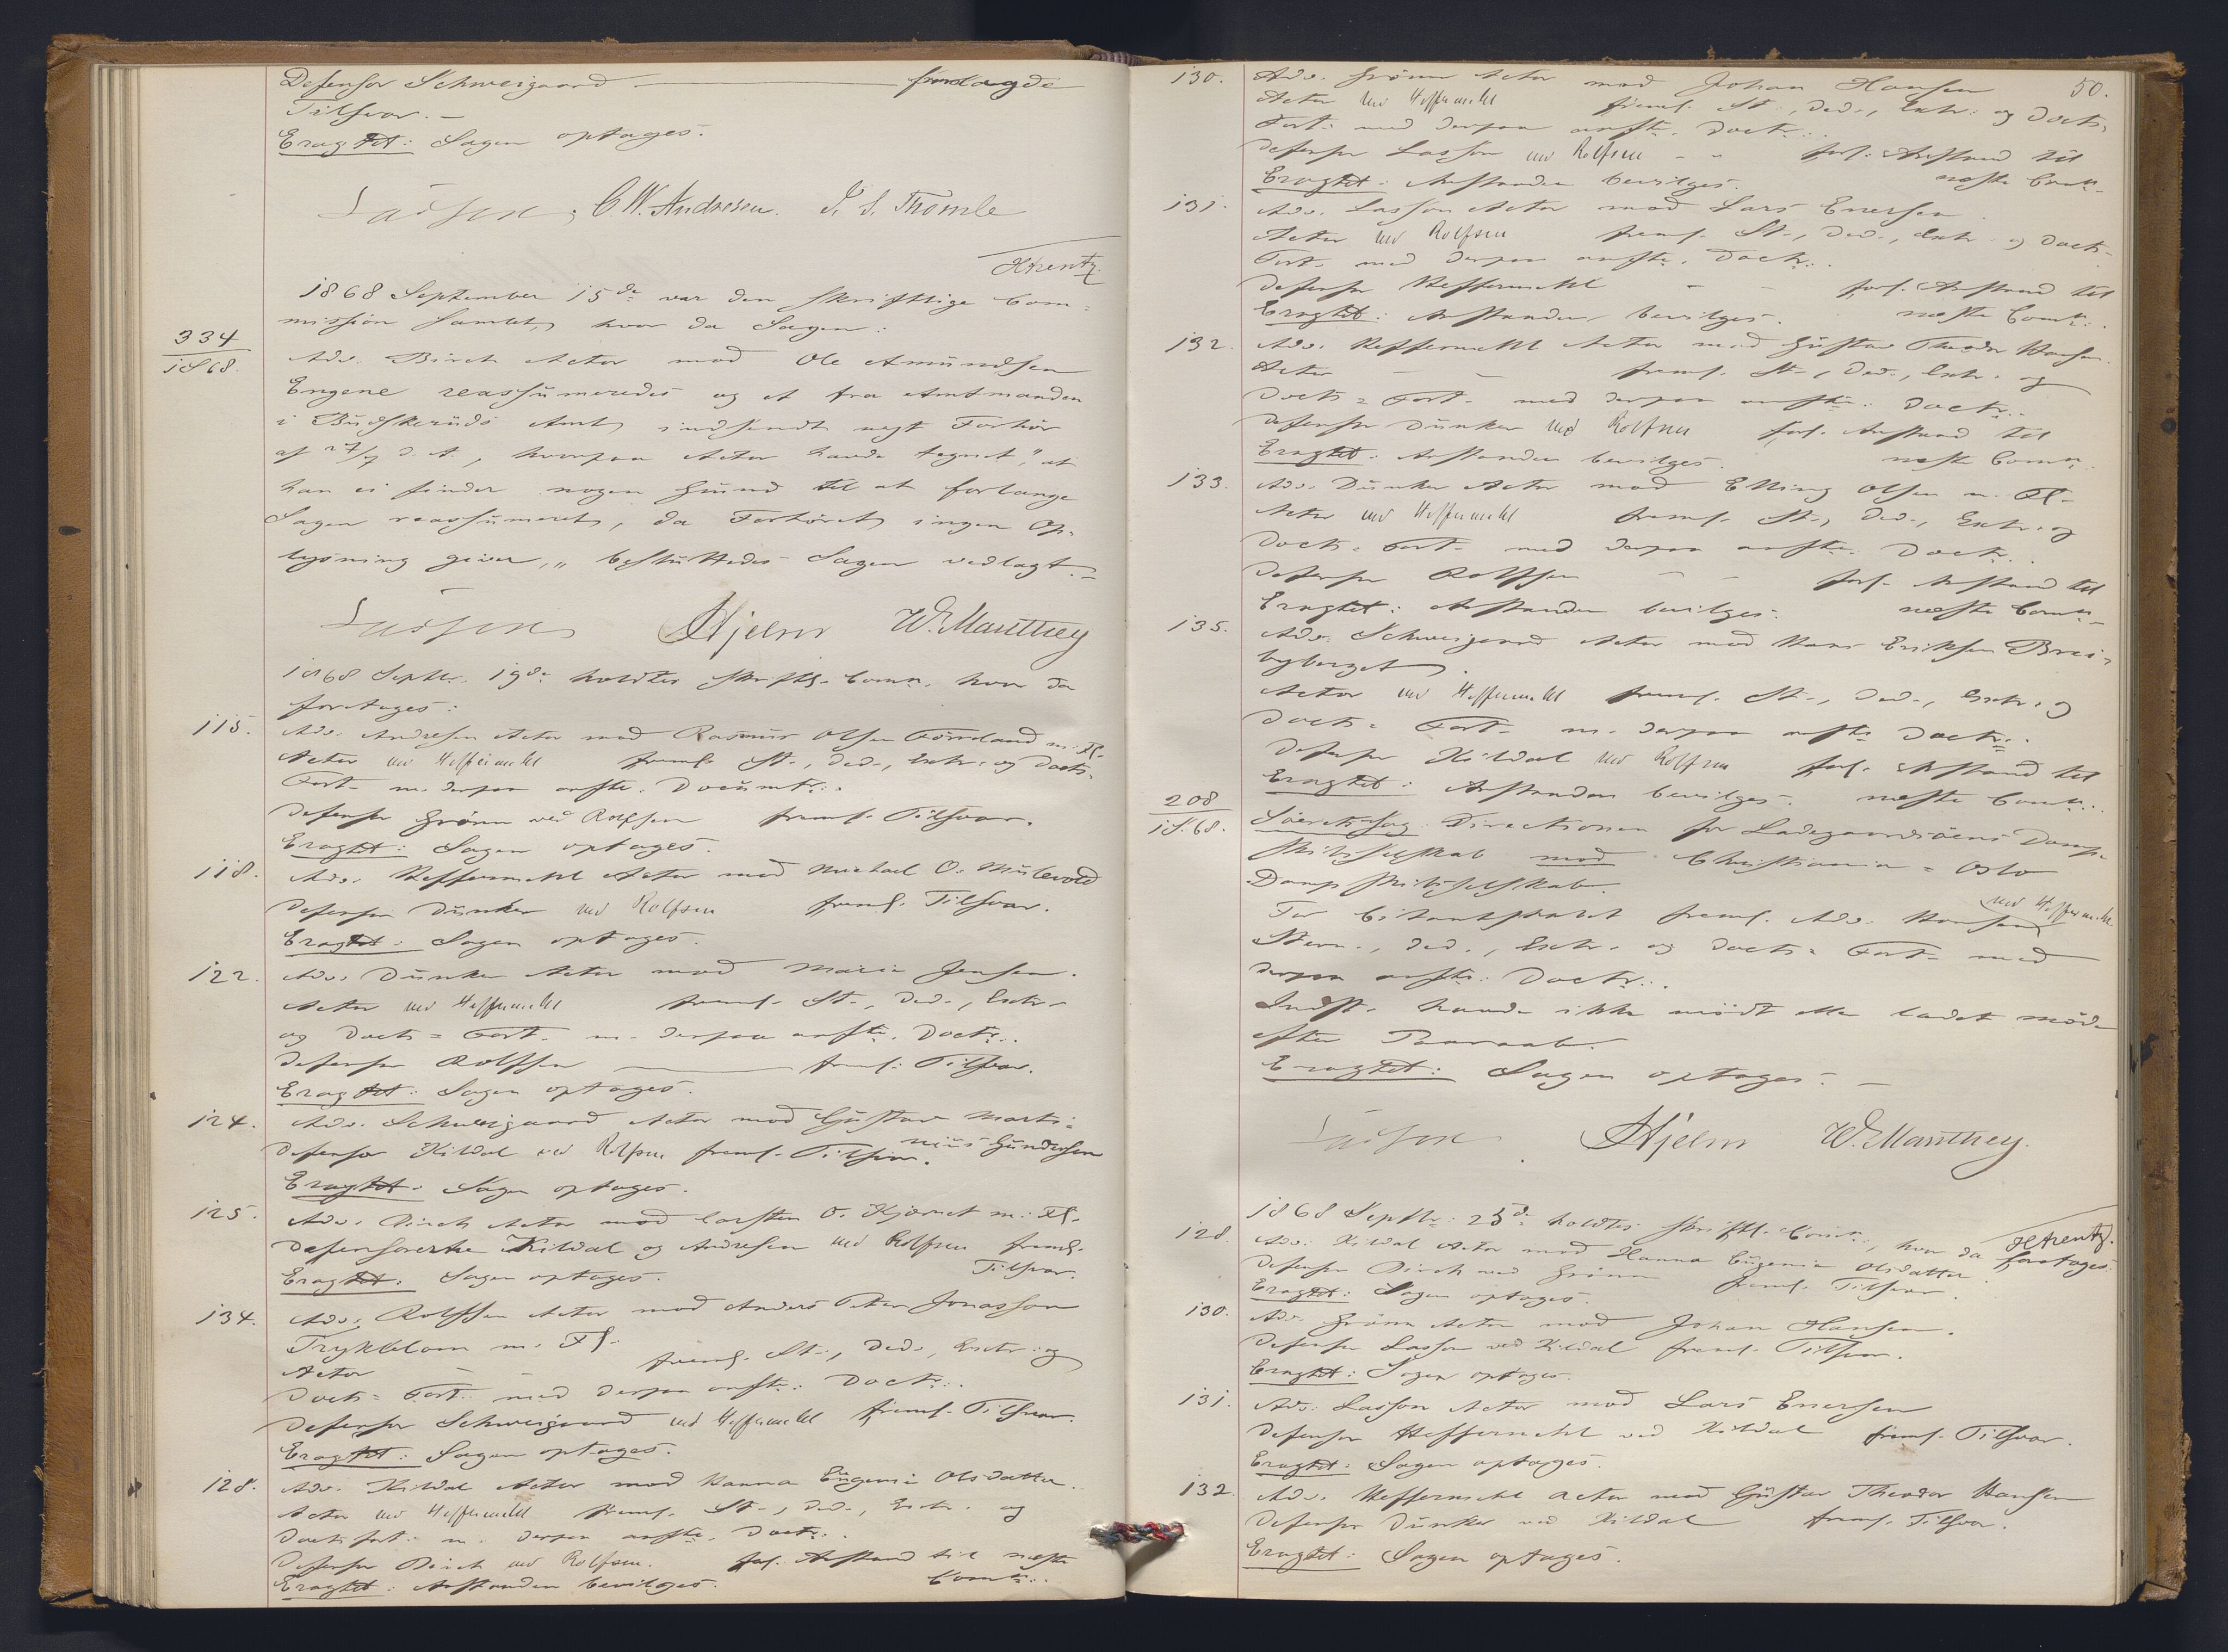 Defensor Schweigaard fremlagde
Tilsvar. –
Eragtet: Sagen optages.
Lasson, C W. Andresen. I. S. Thomle
HArentz.
1868 September 15de var den skriftlige Com=
mission samlet, hvor da Sagen:
334
1S 68.
Adv. Birch Actor mod Ole Amundsen
Engene reassumeredes og et fra Amtmanden
i Buskeruds Amt indsendt nyt Forhør
af d. A., hvorpaa Actor havde tegnet, "at
han ei finder nogen Grund til at forlange
Sagen reassumeret, da Forhøret ingen Op=
lysning giver," besluttedes Sagen vedlagt. –
Lasson Hjelm W. Manthey
1868 Septbr. 19de holdtes skriftl. Comn. hvor da
foretoges:
115. Adv. Andresen Actor mod Rasmus Olsen Førreland m. Fl.
Actor ved Heffermehl freml. St., Ded., Extr. og Docts.
Fort. m. derpaa anfte. Documtr.
Defensor Grönn ved Rolfsen freml. Tilsvar.
Eragtet: Sagen optages.
118. Adv. Heffermehl Actor mod Michael O. Mülevold
Defensor Dunker ved Rolfsen freml. Tilsvar.
Eragtet: Sagen optages.
122. Adv. Dunker Actor mod Maria Jensen.
Actor ved Heffermehl freml. St., Ded., Extr.
og Docts= Fort. m. derpaa anfte. Doctr.
Defensor Rolfsen freml. Tilsvar.
Eragtet: Sagen optages.
124. Adv. Schweigaard Actor mod Gustav Marti=
nius Gundersen
Defensor Kildal ved Rolfsen freml. Tilsvar.
Eragtet: Sagen optages.
125. Adv. Birch Actor mod Carsten O. Kjernet m. Fl.
Defensorerne Kildal og Andresen ved Rolfsen freml.
Tilsvar.
Eragtet: Sagen optages.
134. Adv. Rolfsen Actor mod Anders Peter Jonasson
Trykblom m. Fl.
Actor – – freml. St., Ded., Extr. og
Docts= Fort. med derpaa anfte. Doctr.
Defensor Schweigaard ved Heffermehl freml. Tilsvar.
Eragtet: Sagen optages.
128. Adv. Kildal Actor mod Hanna Eugenia Olsdatter.
Actor ved Heffermehl freml. St., Ded., Extr. og
Docts fort. m. derpaa anfte. Doctr.
Defensor Birch ved Rolfsen. forl. Anstand til næste
Comn.
Eragtet: Anstanden bevilges.
50.
130. Adv. Grönn Actor mod Johan Hansen
Actor ved Heffermehl freml. St., Ded., Extr. og Docts.
Fort. med derpaa anfte. Doctr.
Defensor Lasson ved Rolfsen – – forl. Anstand til
næste Comn.
Eragtet: Anstanden bevilges.
131. Adv. Lasson Actor mod Lars Enersen.
Actor ved Rolfsen freml. St., Ded., Extr. og Docts.
Fort. med derpaa anfte. Doctr.
Defensor Heffermehl – – forl. Anstand til
næste Comn.
Eragtet: Anstanden bevilges.
132. Adv. Heffermehl Actor mod Gustav Theodor Hansen.
Actor – – freml. St., Ded., Extr. og
Docts= Fort. med derpaa anfte. Doctr.
Defensor Dunker ved Rolfsen forl. Anstand til
næste Comn.
Eragtet: Anstanden bevilges.
133. Adv. Dunker Actor mod Elling Olsen m. Fl.
Actor ved Heffermehl freml. St., Ded., Extr. og
Docts= Fort. med derpaa anfte. Doctr.
Defensor Rolfsen – – forl. Anstand til
næste Comn.
Eragtet: Anstanden bevilges.
135. Adv. Schweigaard Actor mod Hans Eriksen Brei=
byberget.
Actor ved Heffermehl freml. St., Ded., Extr. og
Docts= Fort. m. derpaa anfte Doctr.
Defensor Kildal ved Rolfsen forl. Anstand til
næste Comn.
Eragtet: Anstanden bevilges.
208
1S. 68.
Søeretssag. Directionen for Ladegaardsöens Damp=
skibsselskab mod Christiania = Oslo
Dampskibsselskab.
For Citantskabet freml. Adv. Hansen ved Heffermehl
Stevn., Ded., Extr. og Docts= Fort. med
derpaa anfte. Doctr.
Indst. havde ikke mödt eller ladet möde
efter Paaraab.
Eragtet: Sagen optages. –
Lasson Hjelm W. Manthey.
HArentz.
1868 Septbr. 25de holdtes skriftl. Comn., hvor da foretoges:
128. Adv. Kildal Actor mod Hanna Eugenia Olsdatter.
Defensor Birch ved Grönn freml. Tilsvar.
Eragtet: Sagen optages.
130. Adv. Grönn Actor mod Johan Hansen.
Defensor Lasson ved Kildal freml. Tilsvar.
Eragtet: Sagen optages.
131. Adv. Lasson Actor mod Lars Enersen
Defensor Heffermehl ved Kildal freml. Tilsvar.
Eragtet: Sagen optages.
132. Adv. Heffermehl Actor mod Gustav Theodor Hansen
Defensor Dunker ved Kildal freml. Tilsvar.
Eragtet: Sagen optages.